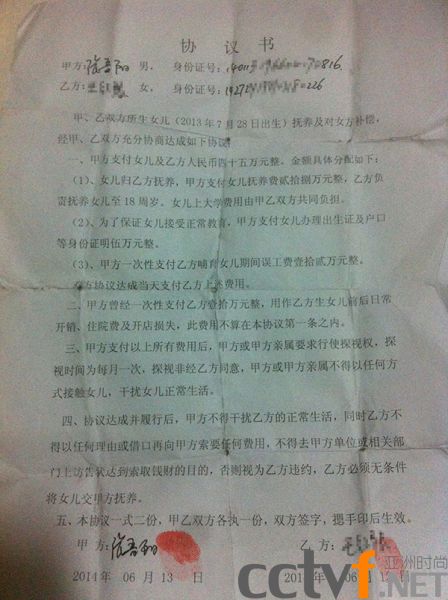 协 议 书
甲方: 男, 身份证号:
乙方: 女, 身份证号:
甲、乙双方所生女儿(2013年7月28日出生)抚养及对女方补偿,
经甲、乙双方充分协商达成如下协议:
一、甲方支付女儿及乙方人民币四十五万元整。金额具体分配如下:
(1)、女儿归乙方抚养,甲方支付女儿抚养费贰拾捌万元整,乙方负
责抚养女儿至18周岁。女儿上大学费用由甲乙双方共同负担。
(2)、为了保证女儿接受正常教育,甲方支付女儿办理出生证及户口
等身份证明伍万元整。
(3)、甲方一次性支付乙方哺育女儿期间误工费壹拾贰万元整。
方协议达成当天支付乙方上述费用。
二、甲方曾经一次性支付乙方壹拾万元整,用作乙方生女儿前后日常
开销、住院费及开店损失,此费用不算在本协议第一条之内。
三、甲方支付以上所有费用后,甲方或甲方亲属要求行使探视权,探
视时间为每月一次,探视非经乙方同意,甲方或甲方亲属不得以任何方
式接触女儿,干扰女儿正常生活。
四、协议达成并履行后,甲方不得干扰乙方的正常生活,同时乙方不
得以任何理由或借口再向甲方索要任何费用,不得去甲方单位或相关部
门上访告状达到索取钱财的目的,否则视为乙方违约,乙方必须无条件
将女儿交甲方抚养。
五、本协议一式二份,甲乙双方各执一份,双方签字,摁手印后生效。
甲 方: 乙方:
2014 年 06 月 13 日
cctvf.com 亚洲时尚